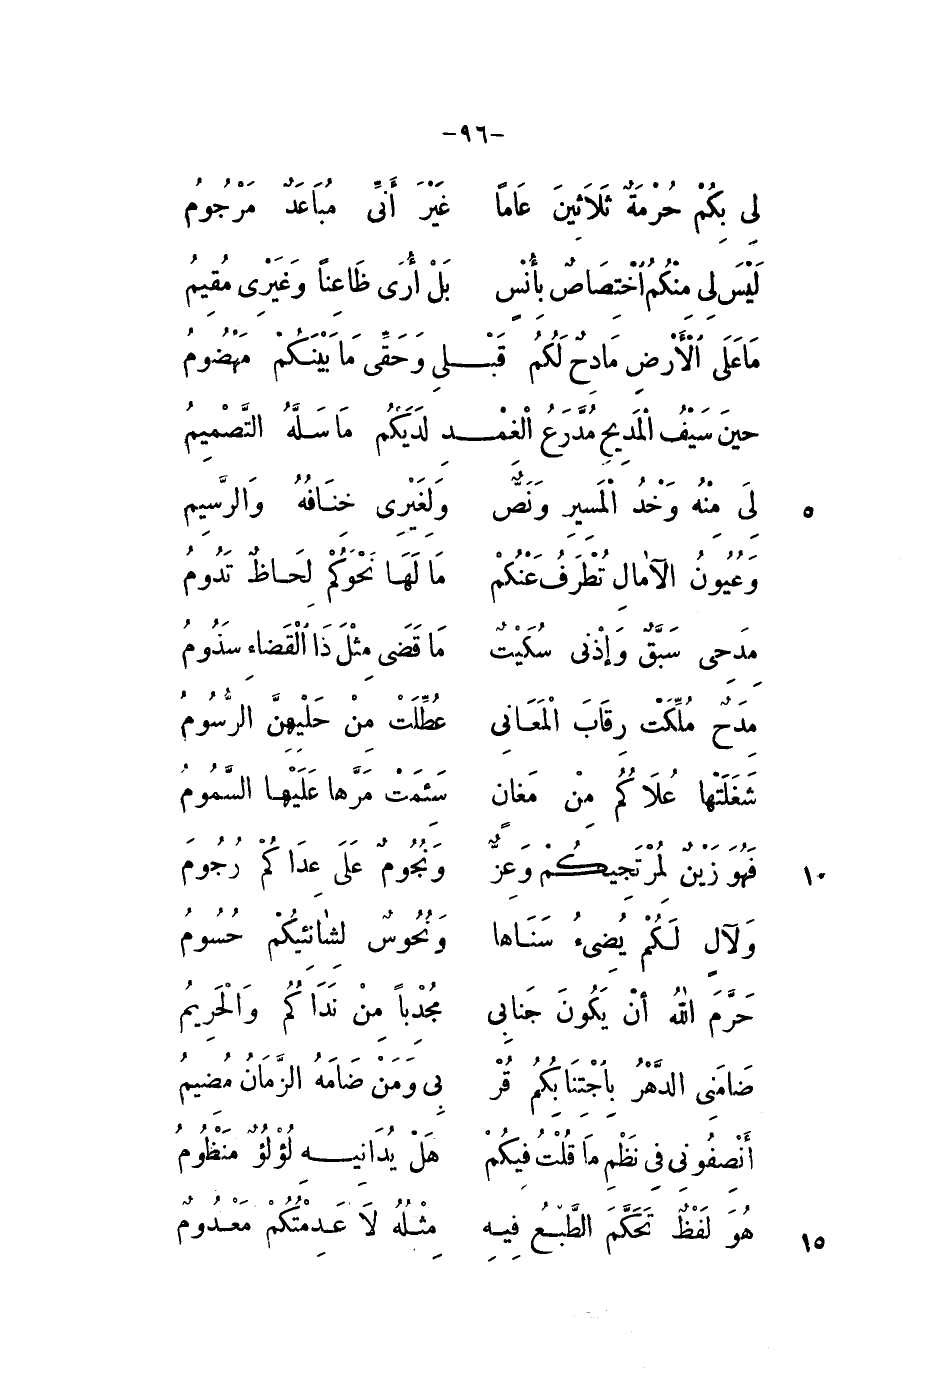 -٩٦-
لِي بِكُمْ حُرْمَةٌ ثَلَاثِينَ عَامًا غَيْرَ أَنِّي مُبَاعَدٌ مَرْجُومُ
لَيْسَ لِي مِنْكُمُ ٱخْتِصَاصٌ بِأُنْسٍ بَلْ أُرَى ظَاعِنًا وَغَيْرِى مُقِيمُ
مَا عَلَى ٱلْأَرْضِ مَادِحٌ لَكُمُ قَبْلِي وَحَقِّى مَا بَيْنَكُمْ مَهْضُومُ
حِينَ سَيْفُ الْمَدِيحِ مُدَّرَعُ الْغِمْدِ لَدَيْكُمْ مَا سَلَّهُ التَّصْمِيمُ
٥ لِيَ مِنْهُ وَخْدُ الْمَسِيرِ وَنَصٌّ وَلِغَيْرِى خِنَافُهُ وَالرَّسِيمُ
وَعُيُونُ الْآمَالِ تُطْرَفُ عَنْكُمْ مَا لَهَا نَحْوَكُمْ لِحَاظٌ تَدُومُ
مِدَحِى سَبَّقٌ وَإِذْنِى سُكَيْتٌ مَا قَضَى مِثْلَ ذَا ٱلْقَضَاءِ سَذُومُ
مِدَحٌ مُلِّكَتْ رِقَابَ الْمَعَانِى عُطِّلَتْ مِنْ حَلْيِهِنَّ الرُّسُومُ
شَغَلَتْهَا عُلَاكُمُ مِنْ مَغَانٍ سَئِمَتْ مَرَّهَا عَلَيْهَا السَّمُومُ
١٠ فَهُوَ زَيْنٌ لِمُرْتَجِيكُمْ وَعِزٌّ وَنُجُومٌ عَلَى عِدَاكُمْ رُجُومُ
وَلَآلٍ لَكُمْ يُضِىءُ سَنَاهَا وَنُحُوسٌ لِشَانِئِيكُمْ حُسُومُ
حَرَّمَ اللهُ أَنْ يَكُونَ جَنَابِى مُجْدِبًا مِنْ نَدَاكُمُ وَالْحَرِيمُ
ضَامَنِى الدَّهْرُ بِٱجْتِنَابِكُمُ قُرْ بِى وَمَنْ ضَامَهُ الزَّمَانُ مُضِيمُ
أَنْصِفُونِى فِى نَظْمِ مَا قُلْتُ فِيكُمْ هَلْ يُدَانِيهِ لُؤْلُؤٌ مَنْظُومُ
١٥ هُوَ لَفْظٌ تَحَكَّمَ الطَّبْعُ فِيهِ مِثْلُهُ لَا عَدِمْتُكُمْ مَعْدُومُ